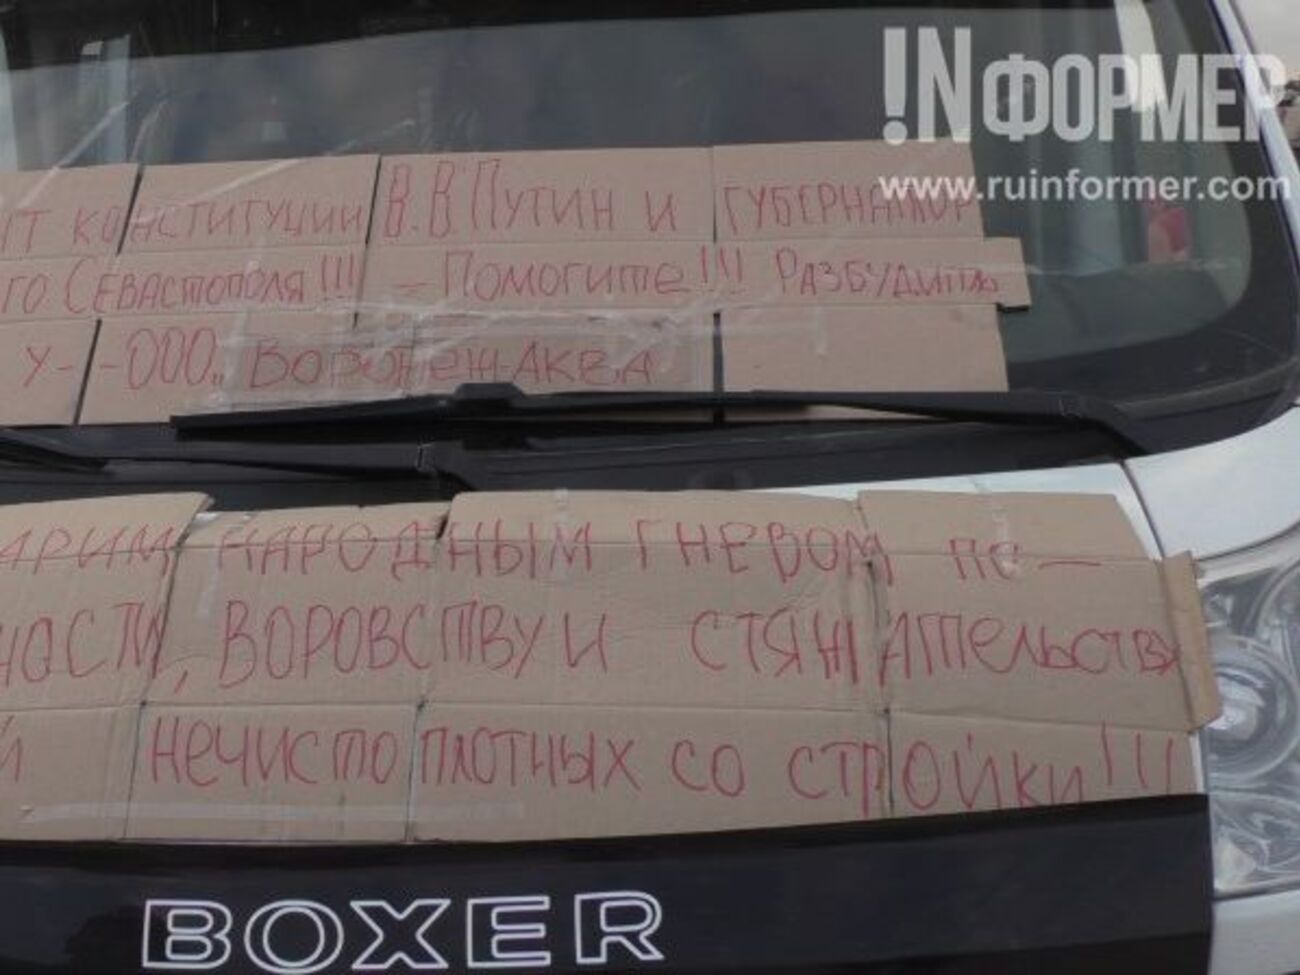 !NФОРМЕР
www.ruinformer.com
НТ КОНСТИТУЦИИ В.В.ПУТИН И ГУБЕРНАТОР
ГО СЕВАСТОПОЛЯ!!! – ПОМОГИТЕ!!! РАЗБУДИТЬ
У--ООО„ ВОРОНЕЖ-АКВА
АРИМ НАРОДНЫМ ГНЕВОМ ПО–
НАСТИ, ВОРОВСТВУ И СТЯЖАТЕЛЬСТВУ
И НЕЧИСТОПЛОТНЫХ СО СТРОЙКИ!!!
BOXER